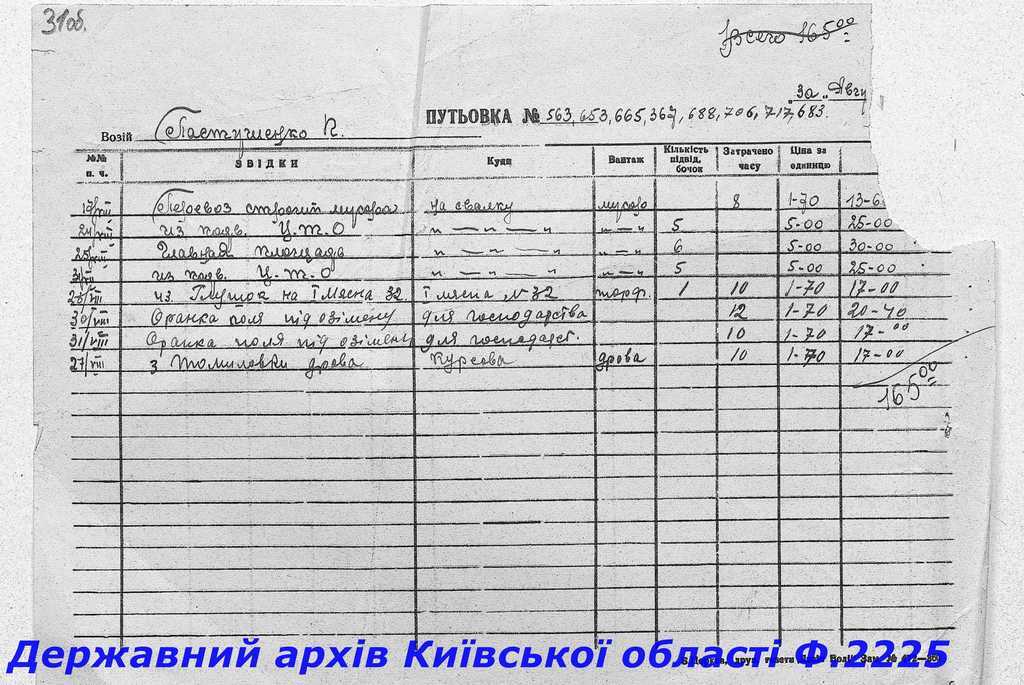 31 об.
Всего 165 00
За "Авгу
ПУТЬОВКА № 563, 653, 665, 367, 688, 706, 717, 683.
Возій
№№ п. ч. ЗВІДКИ Куди Вантаж Кількість підвід, бочок Затрачено часу Ціна за одиницю
19/VIII Перевоз строит мусора на свалку мусор 8 1-70 13-6
24/VIII из подв. Ц.Т.О " — " — " " — " 5 5-00 25-00
25/VIII Главная площадь " — " — " " — " 6 5-00 30-00
из подв. Ц.Т.О " — " — " " — " 5 5-00 25-00
28/VIII из Глушок на Імясна 32 Імясна № 32 торф. 1 10 1-70 17-00
30/VIII Оранка поля під озімену для господарства 12 1-70 20-40
31/VIII Оранка поля під озімену для господарст. 10 1-70 17-00
27/VIII з Томиловки дрова Курсова дрова 10 1-70 17-00
165 00
Державний архів Київської області Ф.2225